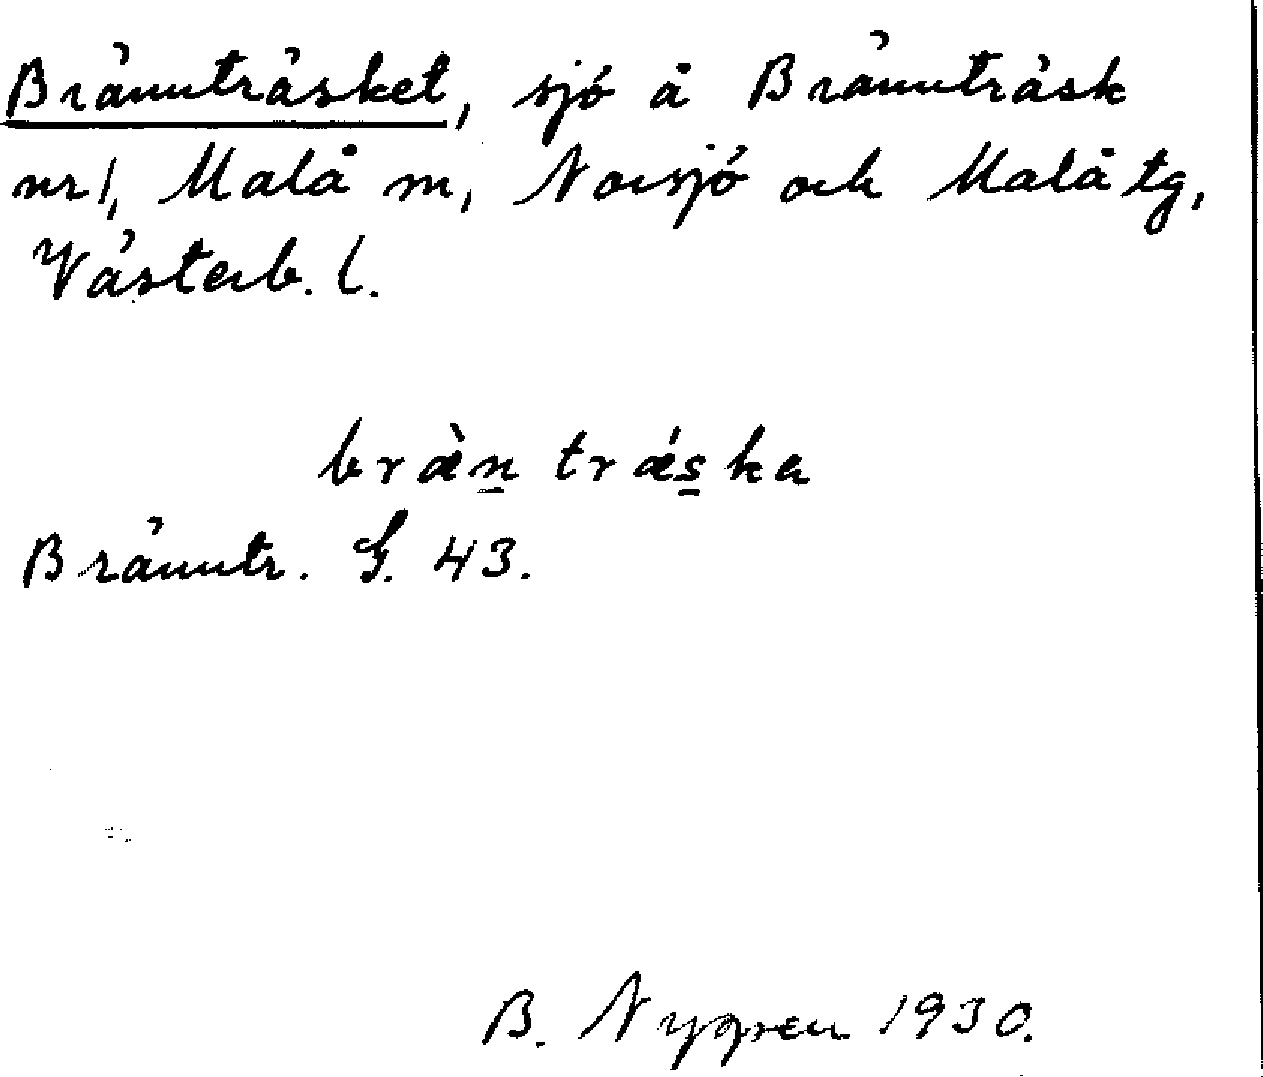 Brännträsket, sjö å Brännträsk
nr 1, Malå sn, Norsjö och Malå tg,
Västerb. l.
bræ̀n trǽska
Bränntr. G. 43.
B. Nygren 1930.